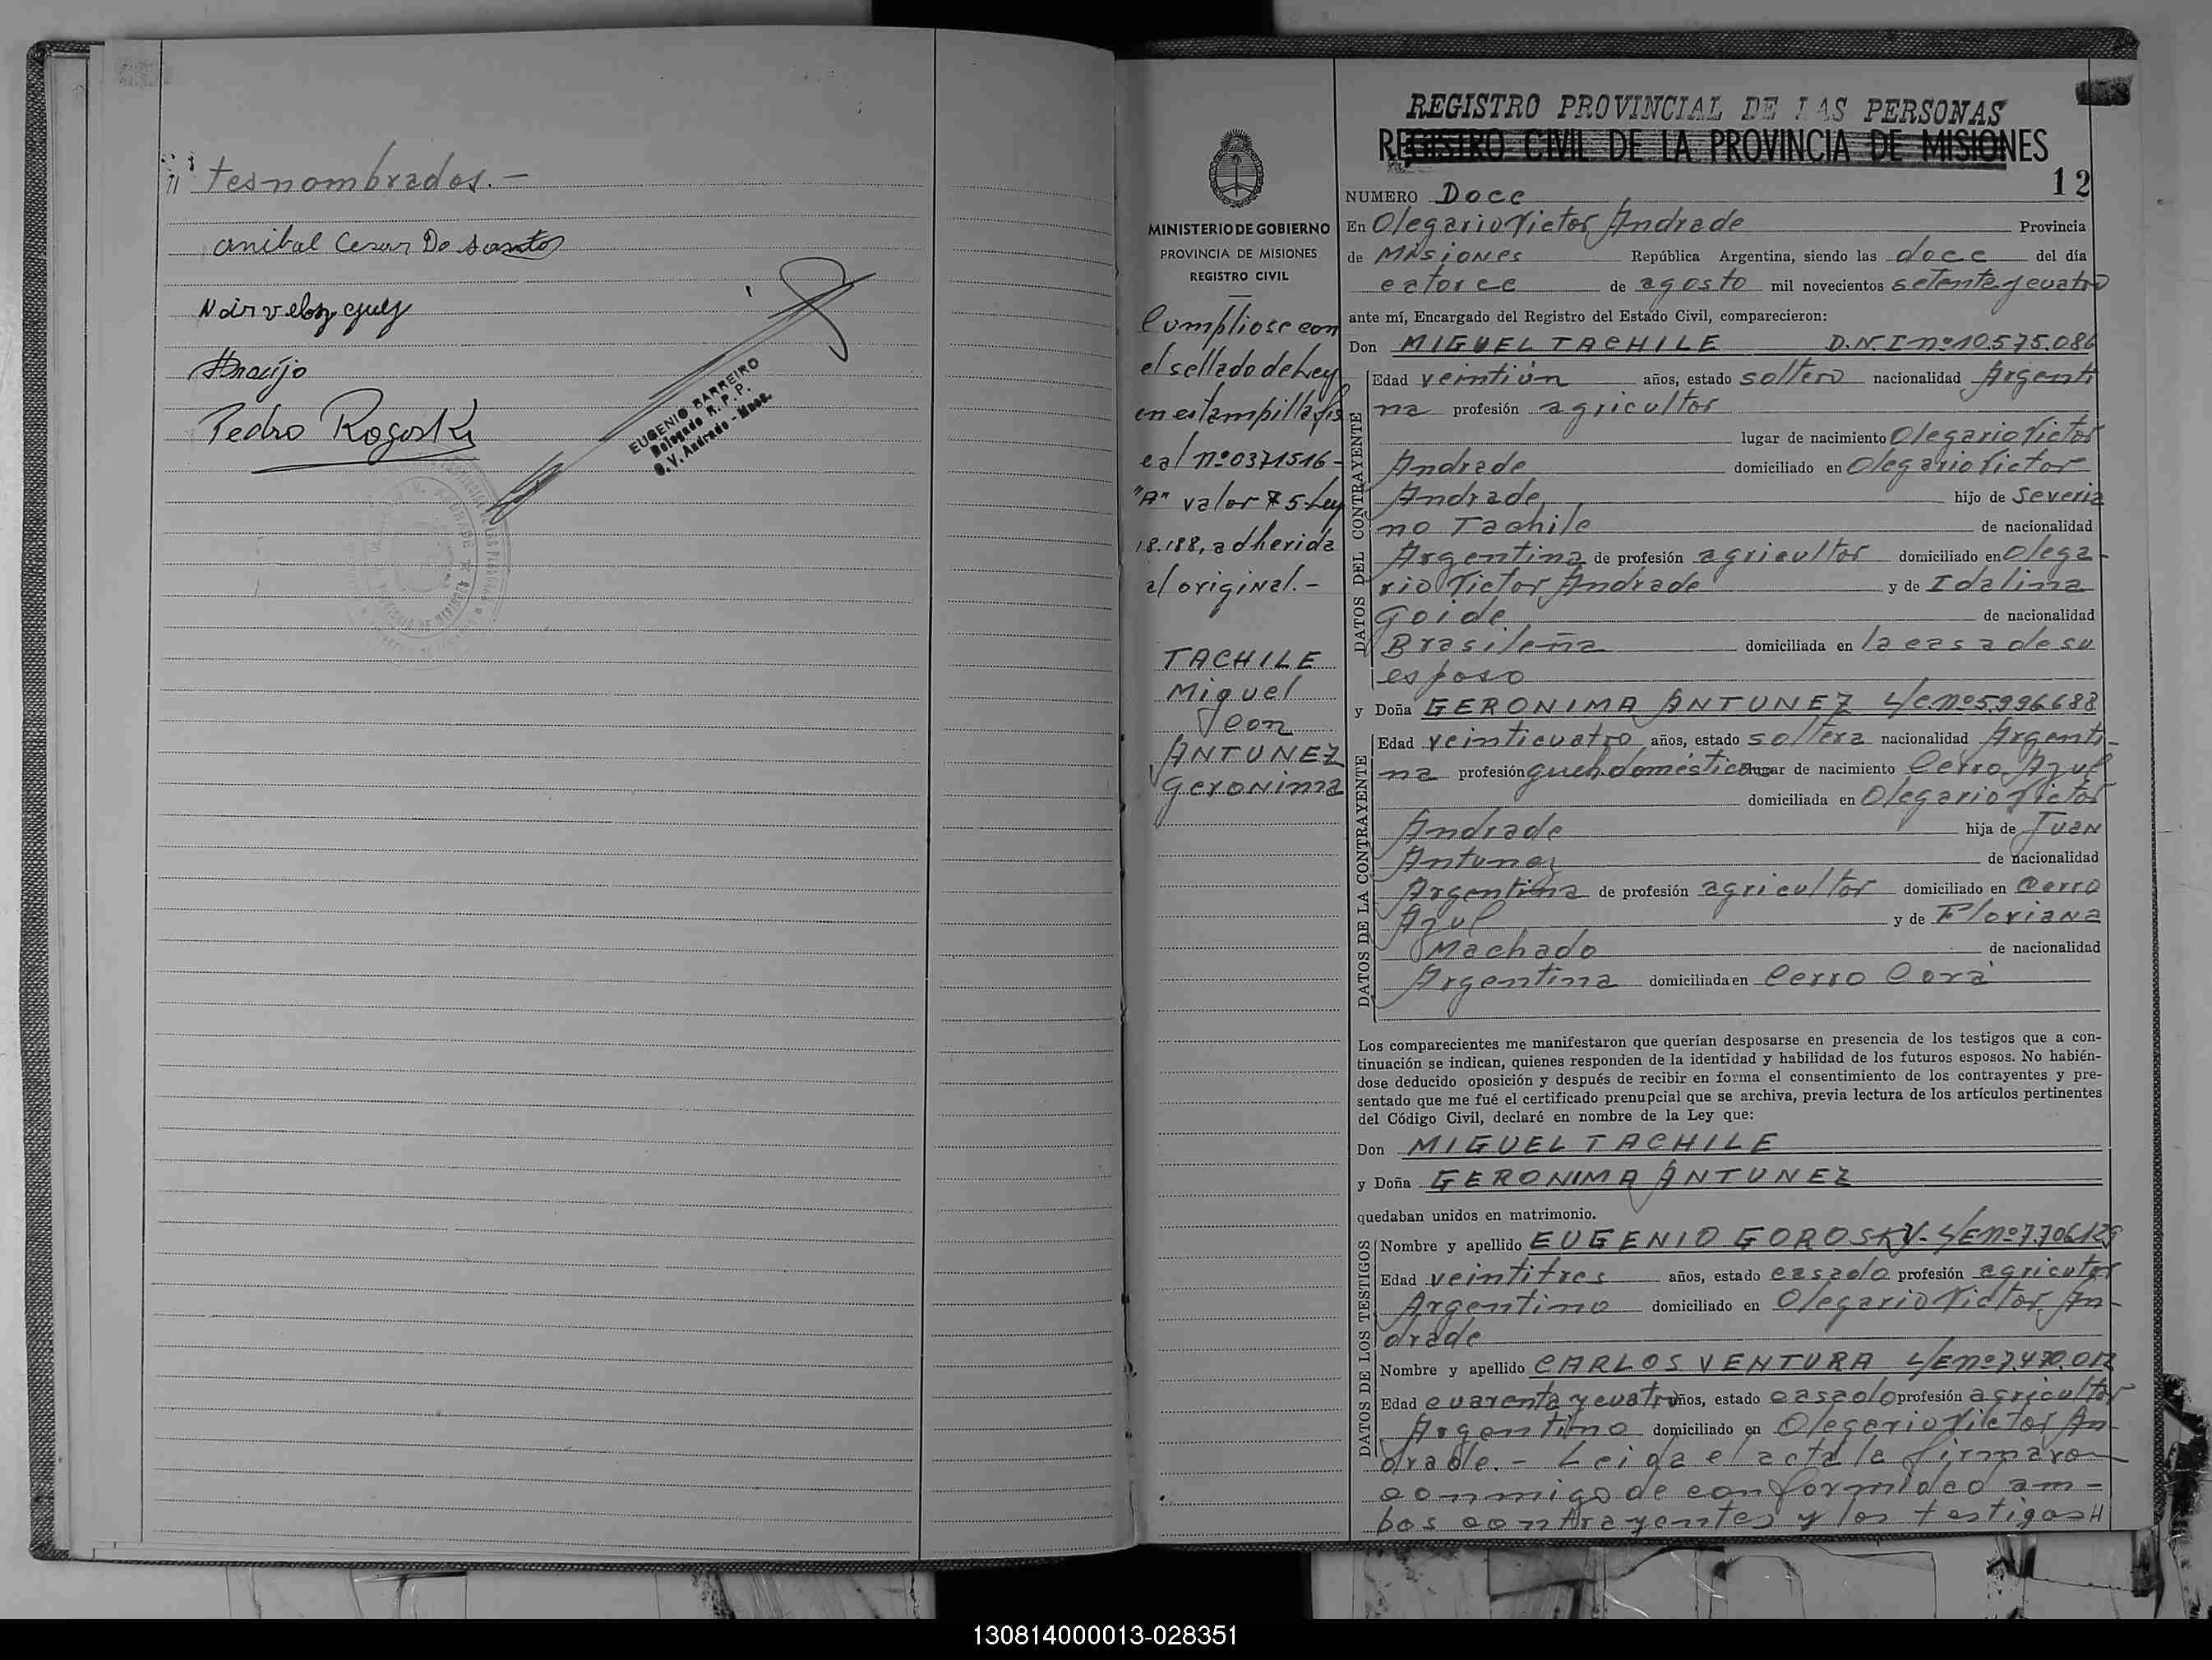 " tesnombrados.-
Anibal Cesar De Santos
Nair velazquez
Araújo
Pedro Rogoski
EUGENIO BARREIRO
Delegado R. P. P.
O. V. Andrade - Mnes.
MINISTERIO DE GOBIERNO
PROVINCIA DE MISIONES
REGISTRO CIVIL
Cumpliose con
el sellado de Ley
en estampilla fis
cal nº 0371516-
"A" valor $ 5 Ley
18.188, adherida
al original.-
TACHILE
Miguel
con
ANTUNEZ
Geronima
REGISTRO PROVINCIAL DE LAS PERSONAS
REGISTRO CIVIL DE LA PROVINCIA DE MISIONES
12
NUMERO Doce
En Olegario Victor Andrade Provincia
de Misiones República Argentina, siendo las doce del día
catorce de agosto mil novecientos setenta y cuatro
ante mí, Encargado del Registro del Estado Civil, comparecieron:
Don MIGUEL TACHILE D.N.I nº 10.575.086
DATOS DEL CONTRAYENTE
Edad veintiún años, estado soltero nacionalidad Argenti
na profesión agricultor
lugar de nacimiento Olegario Victor
Andrade domiciliado en Olegario Victor
Andrade hijo de Severia
no Tachile de nacionalidad
Argentina de profesión agricultor domiciliado en Olega-
rio Victor Andrade y de Idalina
Goide de nacionalidad
Brasileña domiciliada en la casa de su
esposo
y Doña GERONIMA ANTUNEZ L/C nº 5.996.688
DATOS DE LA CONTRAYENTE
Edad veinticuatro años, estado soltera nacionalidad Argenti-
na profesión queh. domésticos lugar de nacimiento Cerro Azul
domiciliada en Olegario Victor
Andrade hija de Juan
Antunez de nacionalidad
Argentina de profesión agricultor domiciliado en Cerro
Azul y de Floriana
Machado de nacionalidad
Argentina domiciliada en Cerro Corá
Los comparecientes me manifestaron que querían desposarse en presencia de los testigos que a con-
tinuación se indican, quienes responden de la identidad y habilidad de los futuros esposos. No habién-
dose deducido oposición y después de recibir en forma el consentimiento de los contrayentes y pre-
sentado que me fué el certificado prenupcial que se archiva, previa lectura de los artículos pertinentes
del Código Civil, declaré en nombre de la Ley que:
Don MIGUEL TACHILE
y Doña GERONIMA ANTUNEZ
quedaban unidos en matrimonio.
DATOS DE LOS TESTIGOS
Nombre y apellido EUGENIO GOROSKY- L/E nº 7.706.129
Edad veintitres años, estado casado profesión agricutor
Argentino domiciliado en Olegario Victor An-
drade
Nombre y apellido CARLOS VENTURA L/E nº 7.470.012
Edad cuarenta y cuatro años, estado casado profesión agricultor
Argentino domiciliado en Olegario Victor An
drade.- Leida el acta la firmaron
conmigo de conformidad am-
bos contrayentes y los testigos
130814000013-028351